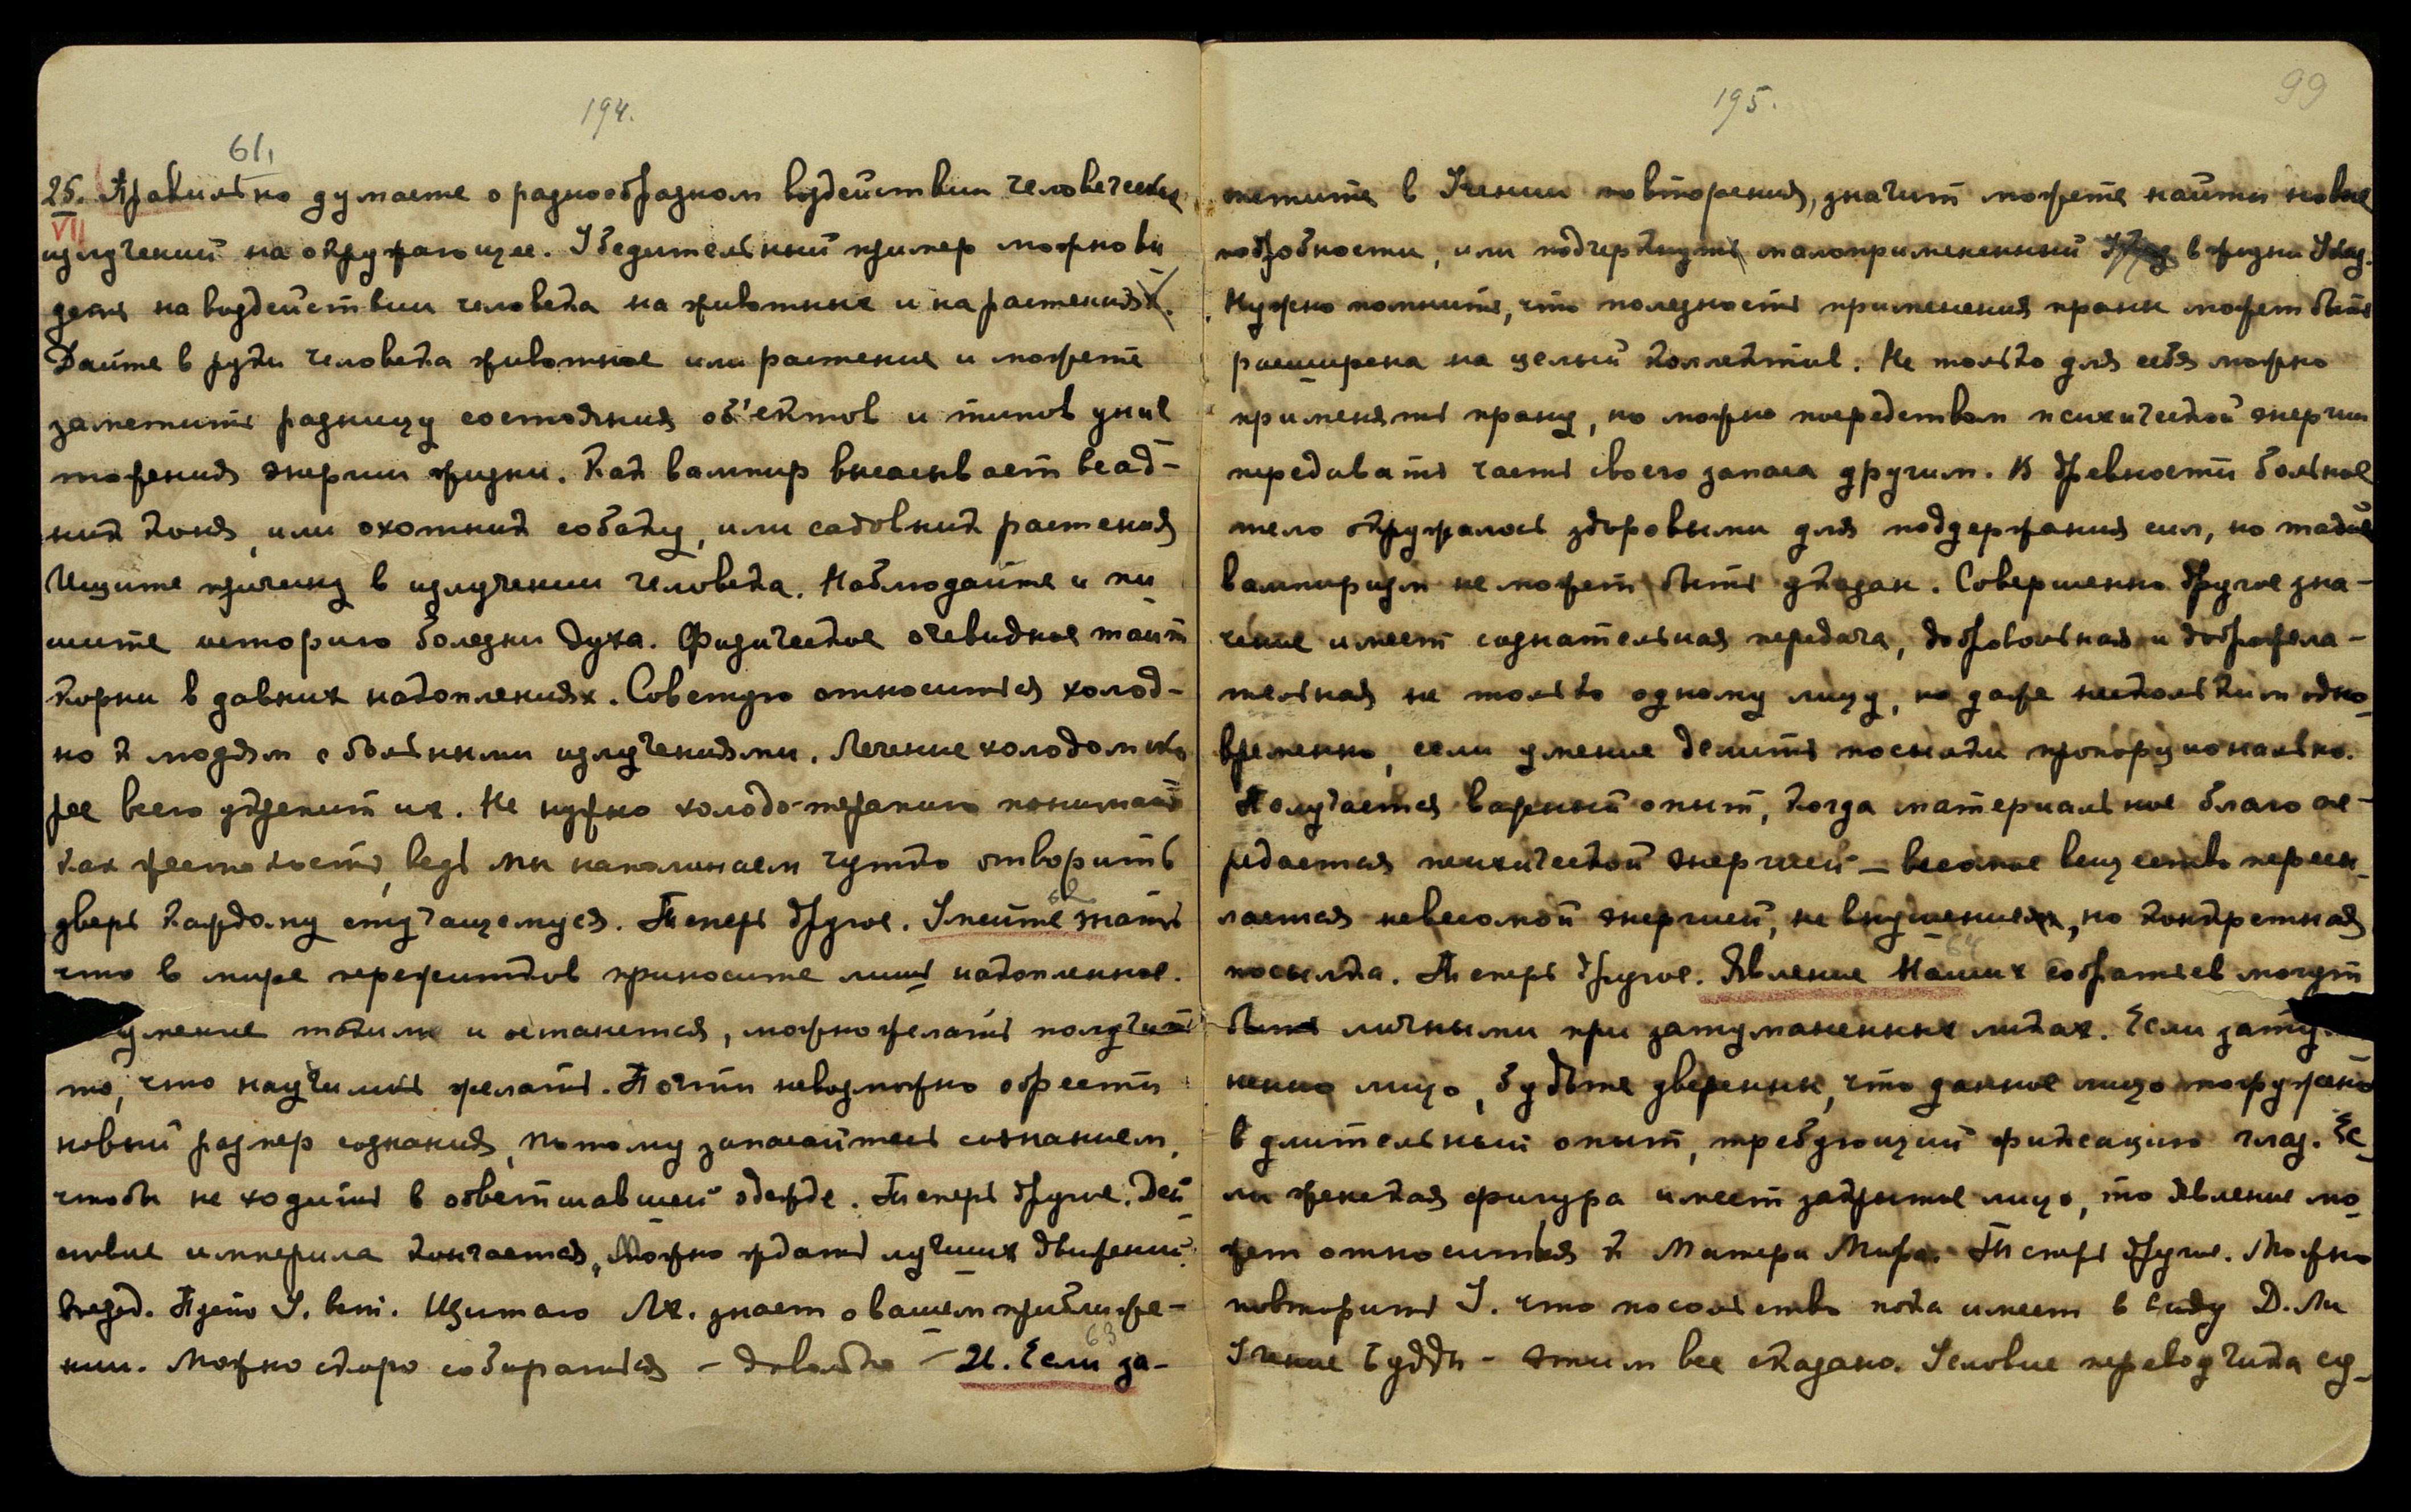 194.
61,
25. Правильно думаете о разнообразном воздействии человеческих
VII
излучений на окружающее. Убедительный пример можно ви
деть на воздействии человека на животных и на растениях.
Дайте в руки человека животное или растение и можете
заметить разницу состояния об'ектов и типов унич
тожения энергии жизни. Как вампир высасывает всад-
ник коня, или охотник собаку, или садовник растения
Ищите причину в излучении человека. Наблюдайте и пи
шите историю болезни духа. Физическое очевидное таит
корни в давних накоплениях. Советую относиться холод-
но к людям с больными излучениями. Лечение холодом ско
рее всего укрепит их. Не нужно холодо-терапию понимать
как жестокость, ведь мы напоминаем чутко отворить
дверь каждому стучащемуся. Теперь другое. Умейте знать
62
что в мире пережитков приносите лишь накопленное.
умение таким и останется, можно желать получить
то, что научились желать. Почти невозможно обрести
новый размер сознания, потому запасайтесь сознанием,
чтобы не ходить в обветшавшей одежде. Теперь другое. Дей
ствие империла кончается, Можно ждать лучших движений
звезд. У. Щитаю Лх. знает о вашем приближе-
нии. Можно скоро собираться – довольно – 26. Если за-
63
195.
99
метите в Учении повторения, значит можете найти новые
подробности, или подчеркнуть малопримененный в жизни Указ.
Нужно помнить, что полезность применения праны может быть
расширена на целый коллектив. Не только для себя можно
применять прану, но можно посредством психической энергии
передавать часть своего запаса другим. В древности больное
тело окружалось здоровыми для поддержания сил, но такой
вампиризм не может быть указан. Совершенно другое зна-
чение имеет сознательная передача, добровольная и доброжела-
тельная не только одному лицу, но даже нескольким одно
временно, если умение делить посылки пропорционально.
Получается важный опыт, когда материальное благо пе-
редается психической энергией – весомое вещество пересы
лается невесомой энергией, не внушение, но конкретная
посылка. Теперь другое. Явление Наших собратьев могут
64
быть личными при затуманенных ликах. Если затума
ненно лицо, будьте уверенны, что данное лицо погружено
в длительный опыт, требующий фиксацию глаз. Ес
ли женская фигура имеет закрытое лицо, то явление мо
жет относиться к Матери Мира. Теперь другое. Можно
повторить У. что посольство пока имеет в виду Д. Ли
Учение Будды – этим все сказано. Условие переводчика су-